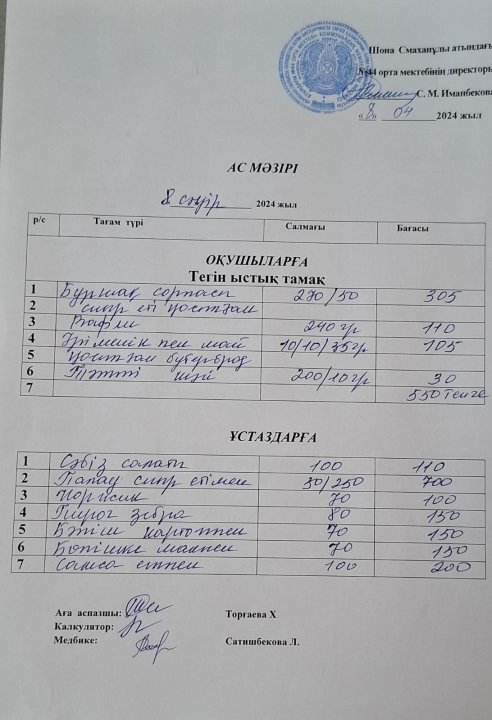 Шона Смаханұлы атындағы
№44 орта мектебінің директоры
С. М. Иманбекова
«8» 04 2024 жыл
АС МӘЗІРІ
8 сәуір 2024 жыл
р/с Тағам түрі Салмағы Бағасы
ОҚУШЫЛАРҒА
Тегін ыстық тамақ
1 Бұршақ сорпасы 270/50 305
2 сиыр еті қостғам
3 Вафли 240 гр 110
4 Ірімшік пен май 10/10/35гр 105
5 қостғам бутерброд
6 Тәтті шәй 200/10гр 30
7 550 тенге
ҰСТАЗДАРҒА
1 Сәбіз салаты 100 110
2 Палау сиыр етімен 50/250 700
3 70 100
4 Пирог зебра 80 150
5 Бәліш картоппен 70 150
6 Бөлішке макпен 70 150
7 Самса етпен 100 200
Аға аспазшы: Торғаева Х
Калкулятор:
Медбике: Сатишбекова Л.